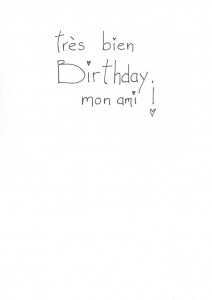 très bien
Birthday,
mon ami !